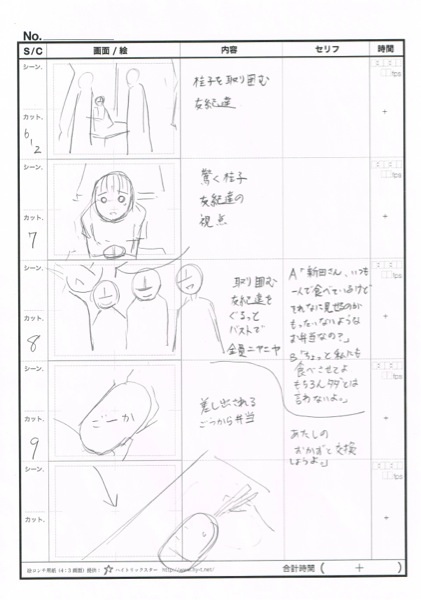 No.
S/C
画面 / 絵
内容
セリフ
時間
シーン.
カット.
6
1/2
桂子を取り囲む
友紀達
fps
+
シーン.
カット.
7
驚く桂子
友紀達の
視点
fps
+
シーン.
カット.
8
取り囲む
友紀達を
ぐるっと
バストで
全員ニヤニヤ
A「新田さん、いつも
一人で食べているけど
それなに見せるのが
もったいないような
お弁当なの?」
B「ちょっと私たち
食べさせてよ
もちろんタダとは
言わないよ。」
fps
+
シーン.
カット.
9
ごーか
差し出される
ごうから弁当
あたしの
おかずと交換
しようよ。」
fps
+
シーン.
カット.
fps
+
絵コンテ用紙 (4:3 横画) 提供:
ハイトリックスター
合計時間 ( + )